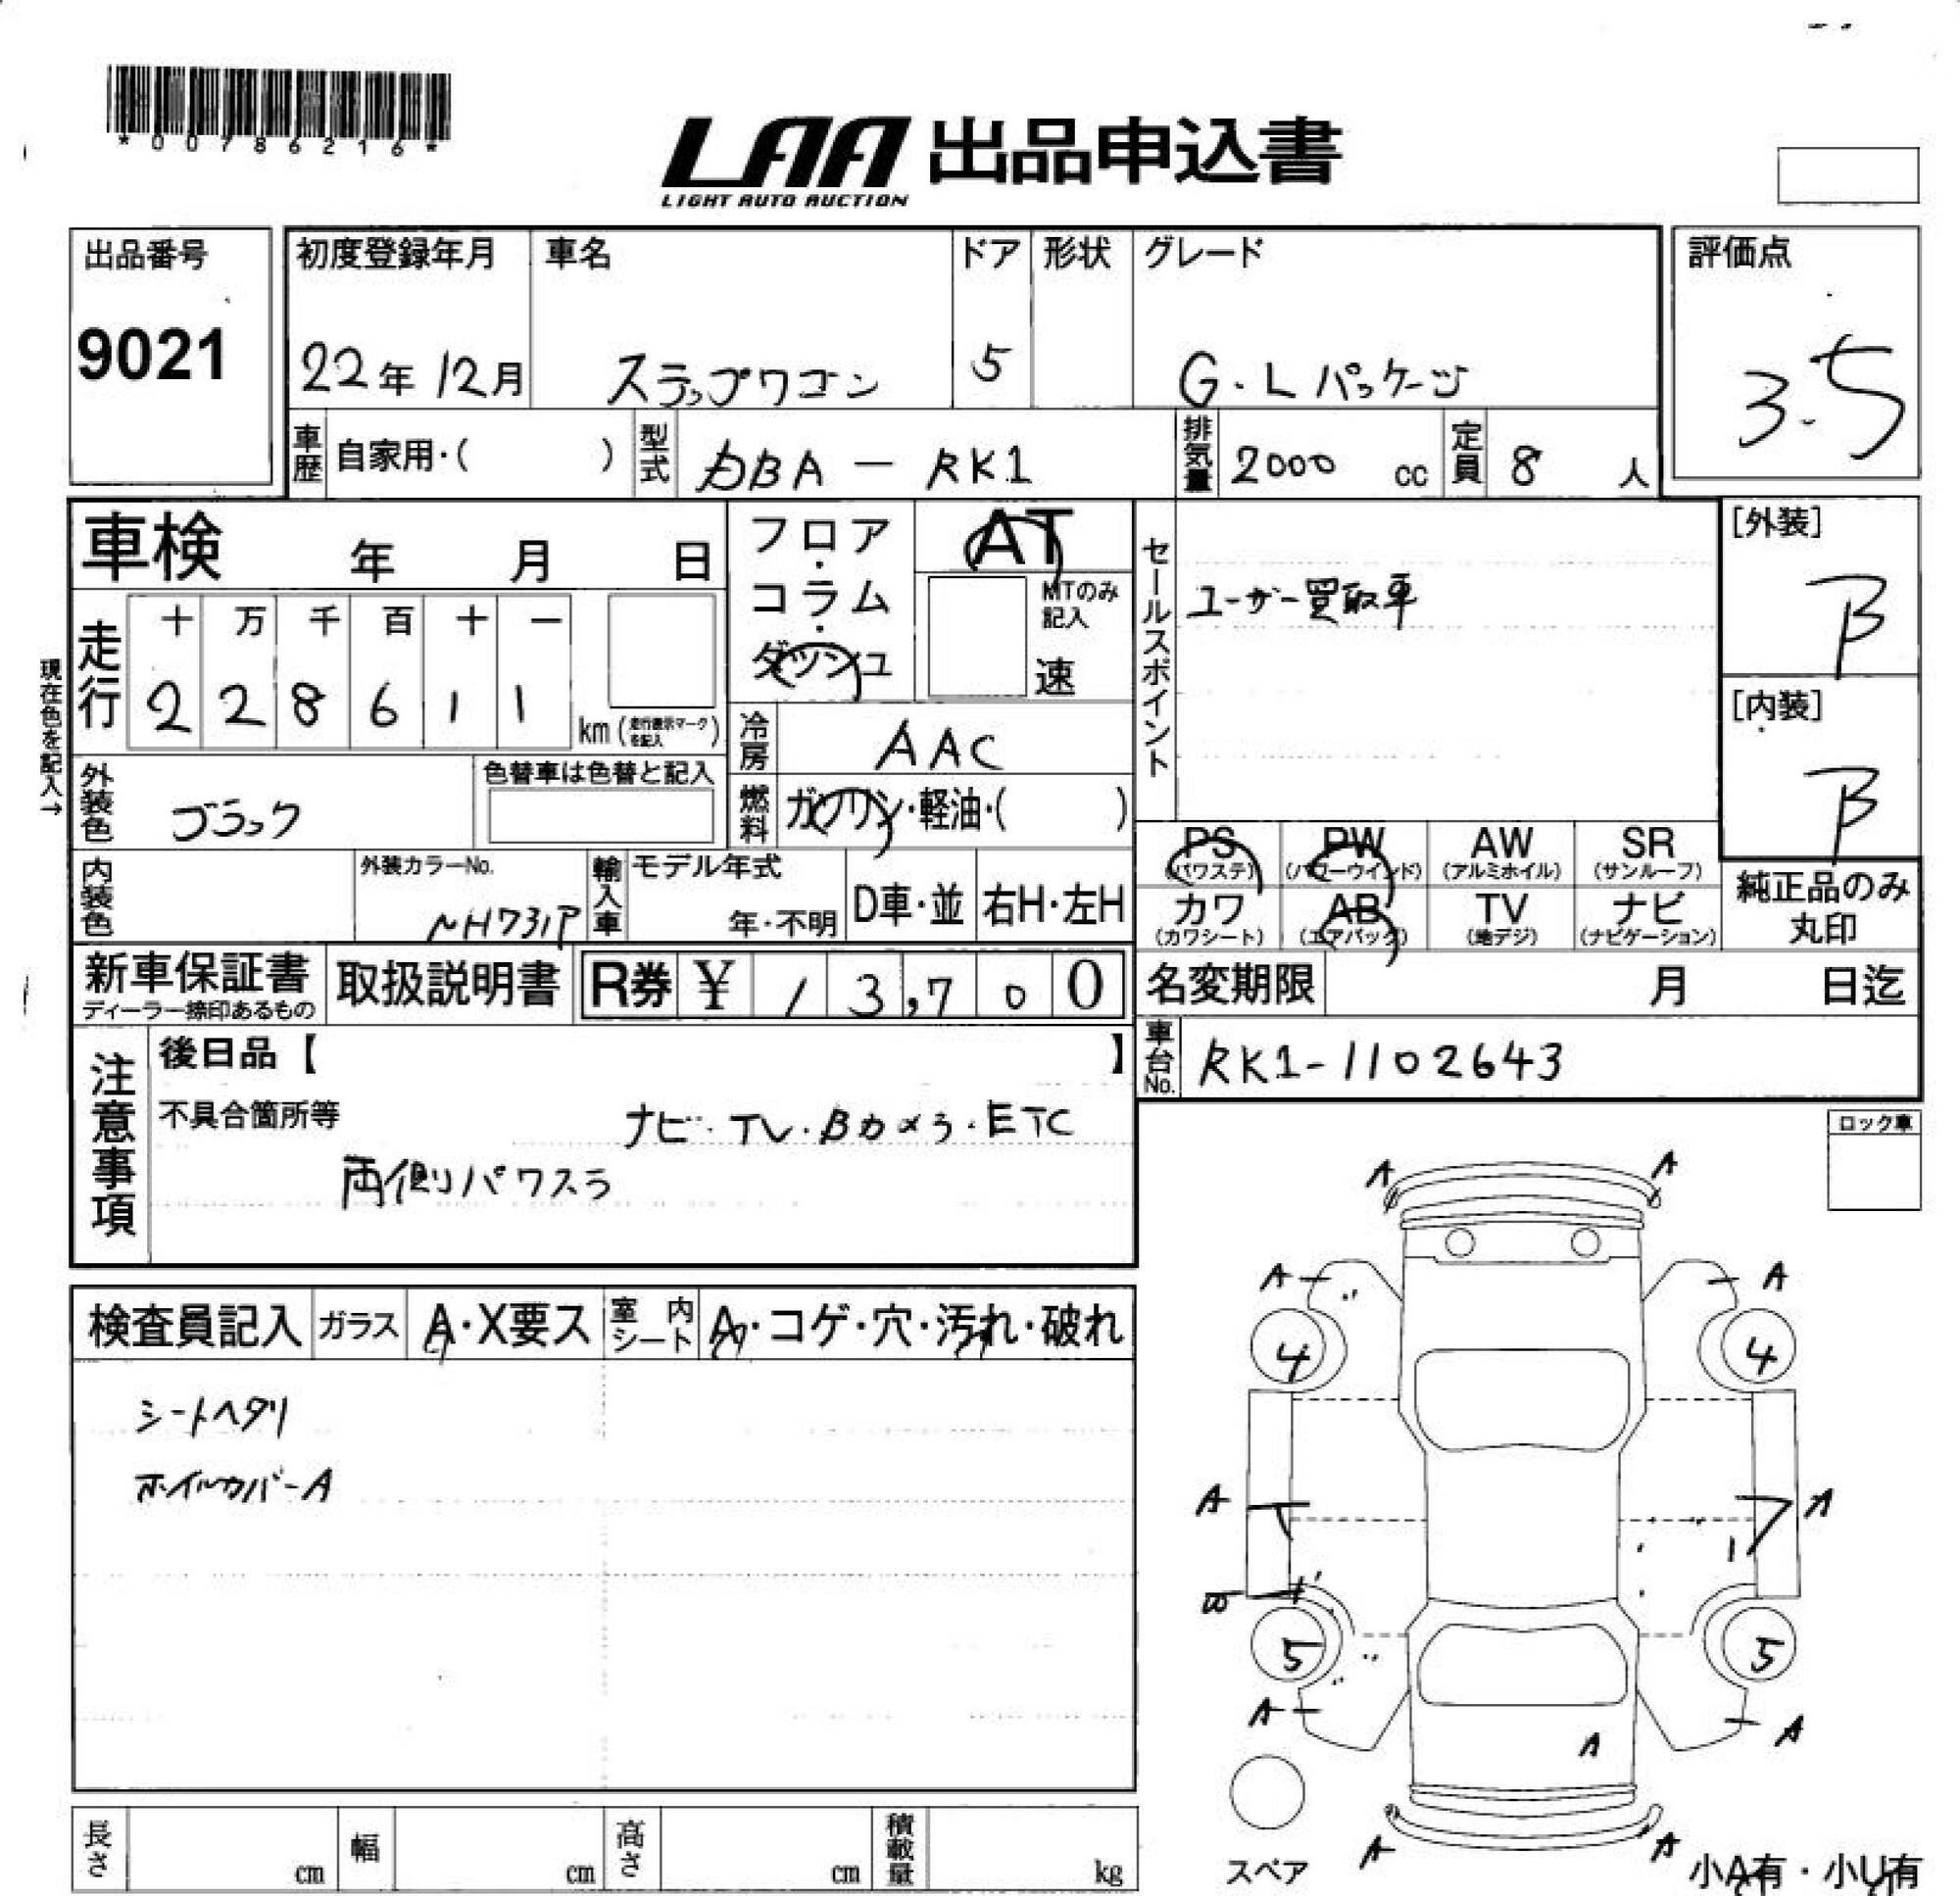 *00786216*
LAA 出品申込書
LIGHT AUTO AUCTION
出品番号
9021
初度登録年月
22年 12月
車名
ステップワゴン
ドア
5
形状
グレード
G・Lパッケージ
評価点
3.5
車歴 自家用・( )
型式 DBA - RK1
排気量 2000 cc
定員 8 人
車検 年 月 日
フロア・コラム・ダッシュ
AT
MTのみ記入
速
セールスポイント
ユーザー買取車
[外装]
B
[内装]
B
現在色を記入→
走行
十 万 千 百 十 一
2 2 8 6 1 1
km (走行表示マークを記入)
冷房 AAC
外装色 ブラック
色替車は色替と記入
燃料 ガソリン・軽油・( )
PS (パワステ)
PW (パワーウインド)
AW (アルミホイル)
SR (サンルーフ)
カワ (カワシート)
AB (エアバッグ)
TV (地デジ)
ナビ (ナビゲーション)
純正品のみ丸印
内装色
外装カラーNo.
NH731P
輸入車
モデル年式
年・不明
D車・並
右H・左H
新車保証書
ディーラー捺印あるもの
取扱説明書
R券 ¥ 13,700
名変期限 月 日迄
車台No. RK1-1102643
注意事項
後日品【 】
不具合箇所等
ナビ・TV・Bカメラ・ETC
両側パワスラ
ロック車
検査員記入
ガラス A・X要ス
室内シート A・コゲ・穴・汚れ・破れ
シートヘタリ
ホイルカバーA
A A
A A
4 4
A A
1
W 1
5 5
A A
A
A A
スペア
小A有・小U有
長さ cm
幅 cm
高さ cm
積載量 kg